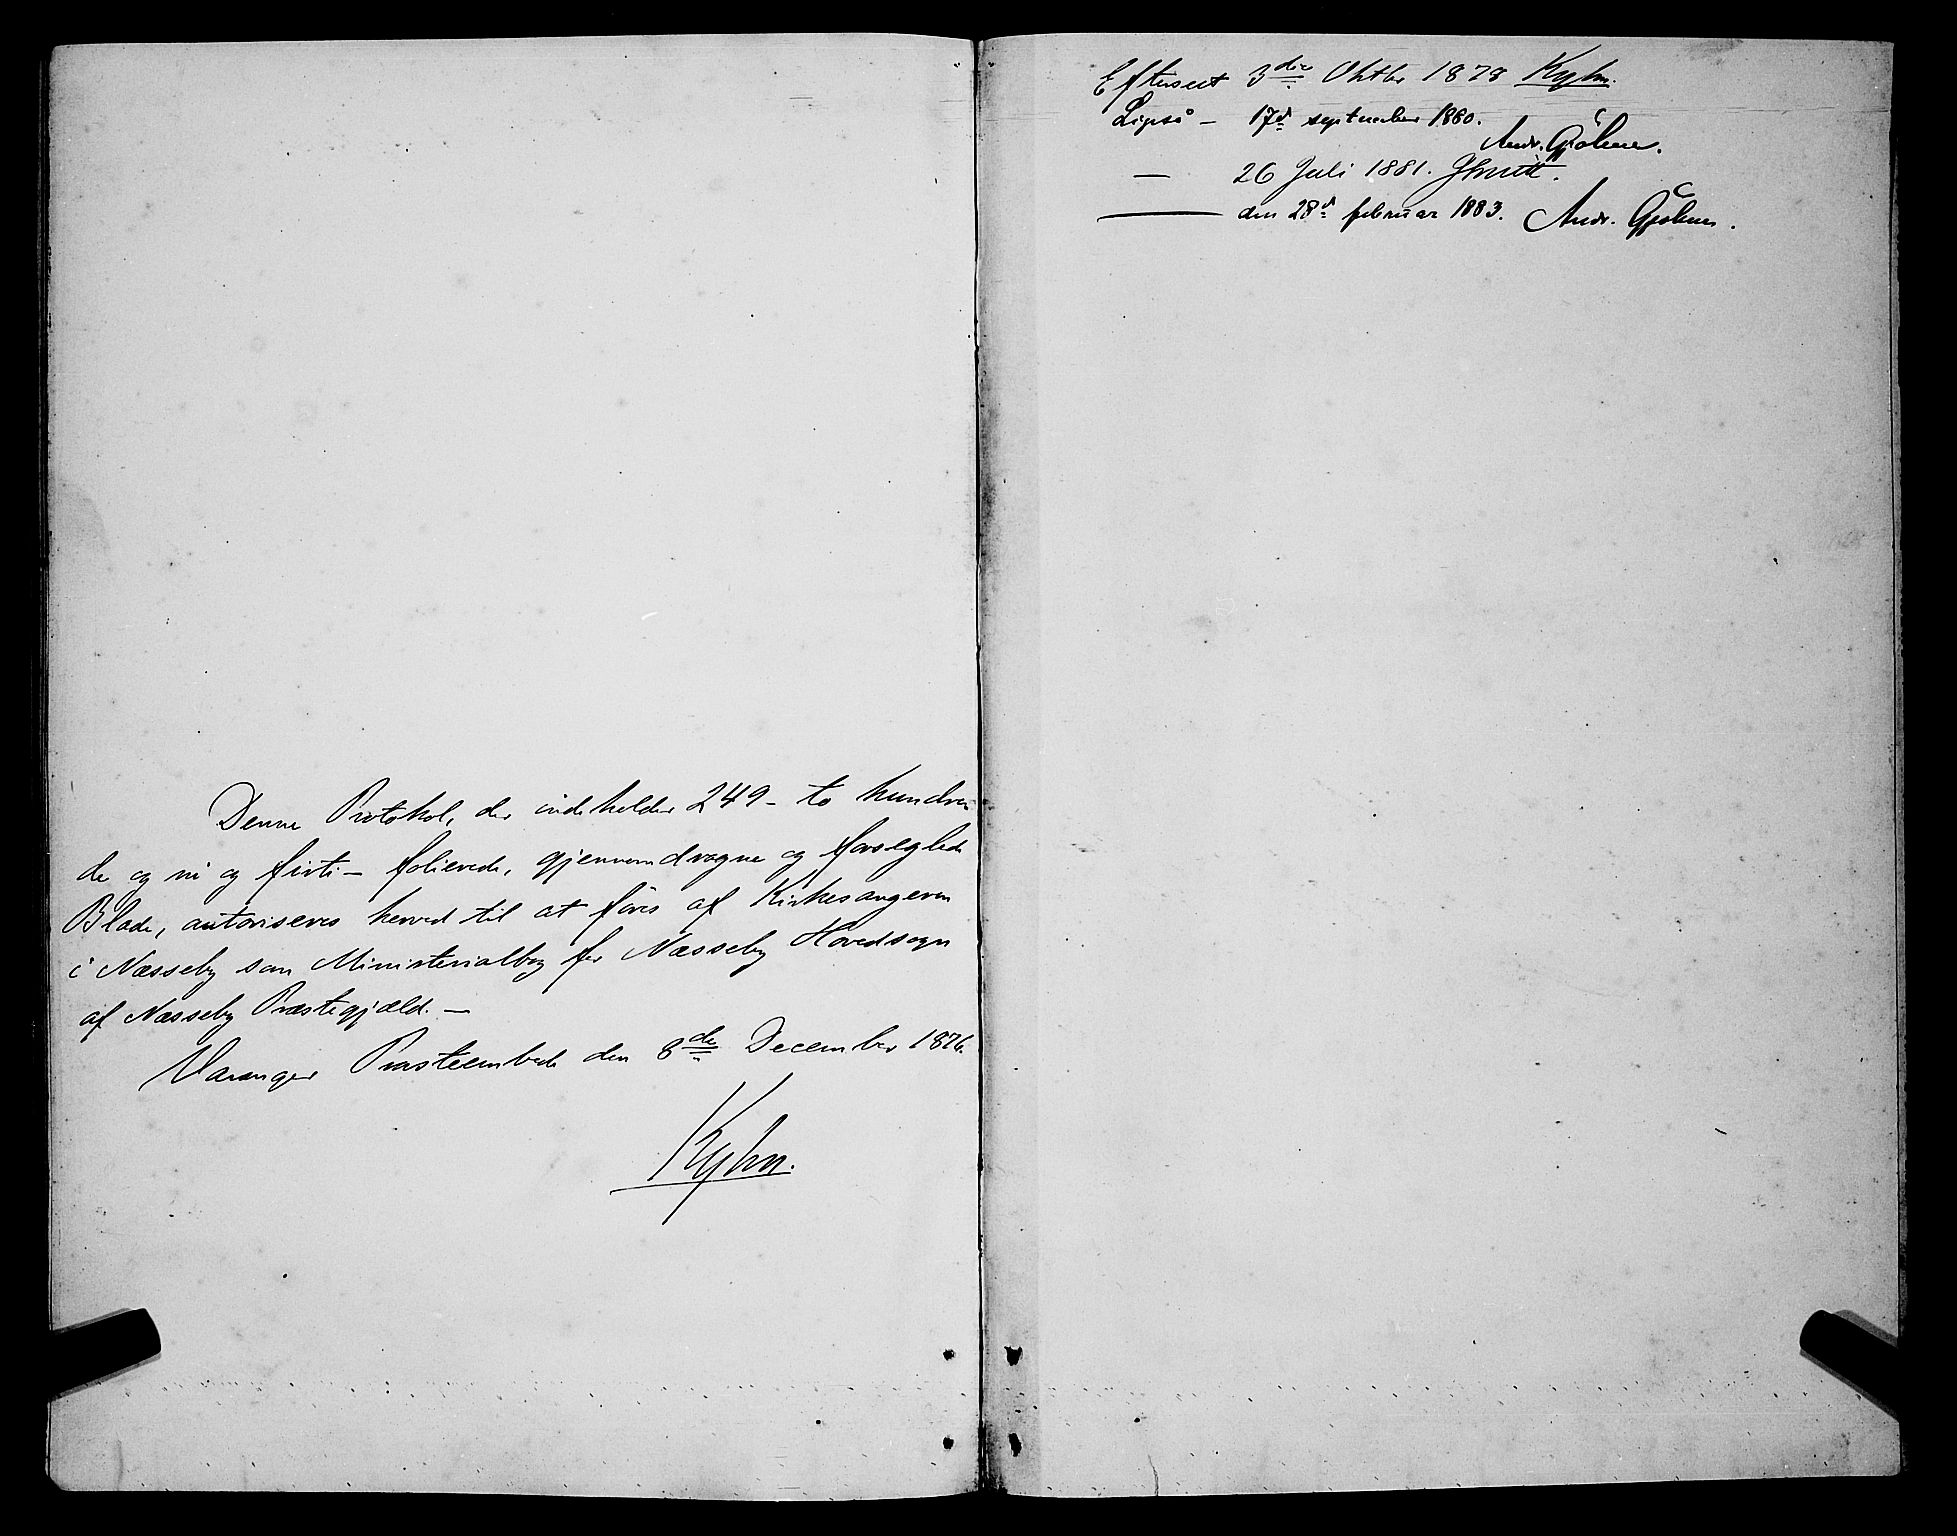 Denne Protokol, der indeholder 249 - to hundre
de og ni og firti - folierede, gjennemdragne og forseglede
Blade, autoriseres herved til at føres af Kirkesangeren
i Næsseby som Ministerialbog for Næsseby Hovedsogn
af Næsseby Præstegjæld. -
Varanger Prosteembede den 8de December 1876.
Kyhn.
Efterseet 3die Oktbr 1878 Kyhn.
Ligeså - 17d september 1880.
Andr. Gjølme.
— 26 Juli 1881.
— den 28d februar 1883. Andr. Gjølme.